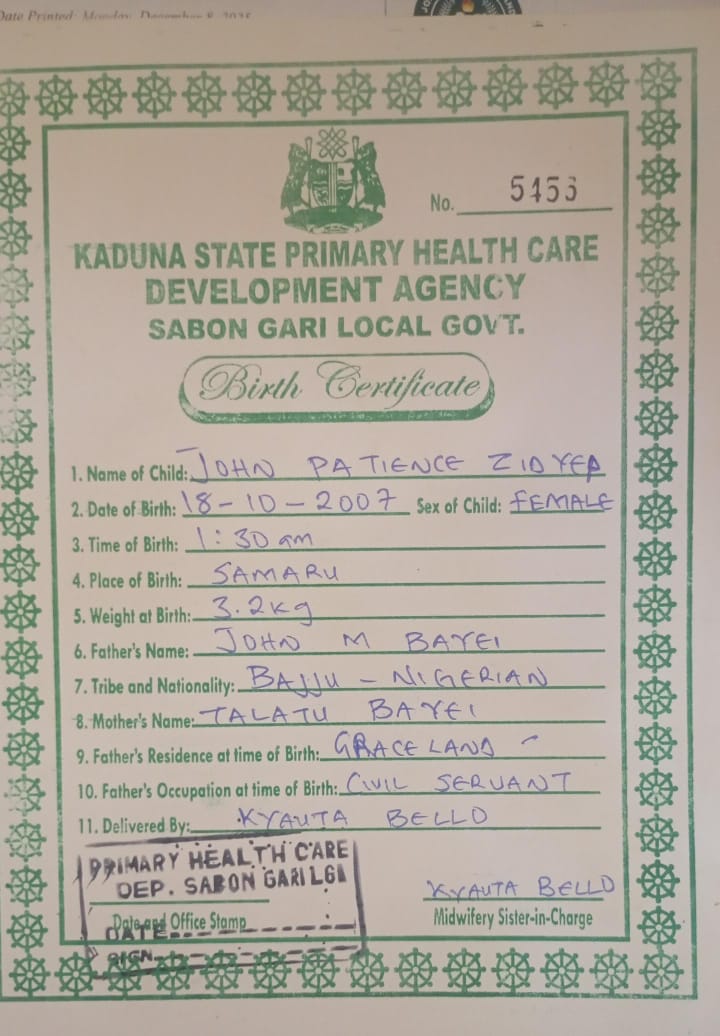 Date Printed: Monday, December 8, 2025
No. 5453
KADUNA STATE PRIMARY HEALTH CARE
DEVELOPMENT AGENCY
SABON GARI LOCAL GOVT.
Birth Certificate
1. Name of Child: JOHN PATIENCE ZIDYEP
2. Date of Birth: 18-10-2007 Sex of Child: FEMALE
3. Time of Birth: 1:30 am
4. Place of Birth: SAMARU
5. Weight at Birth: 3.2kg
6. Father's Name: JOHN M BAYEI
7. Tribe and Nationality: BAJJU - NIGERIAN
8. Mother's Name: TALATU BAYEI
9. Father's Residence at time of Birth: GRACELAND
10. Father's Occupation at time of Birth: CIVIL SERVANT
11. Delivered By: KYAUTA BELLO
PRIMARY HEALTH CARE
DEP. SABON GARI LGA
KYAUTA BELLO
Date and Office Stamp Midwifery Sister-in-Charge
DATE
SIGN